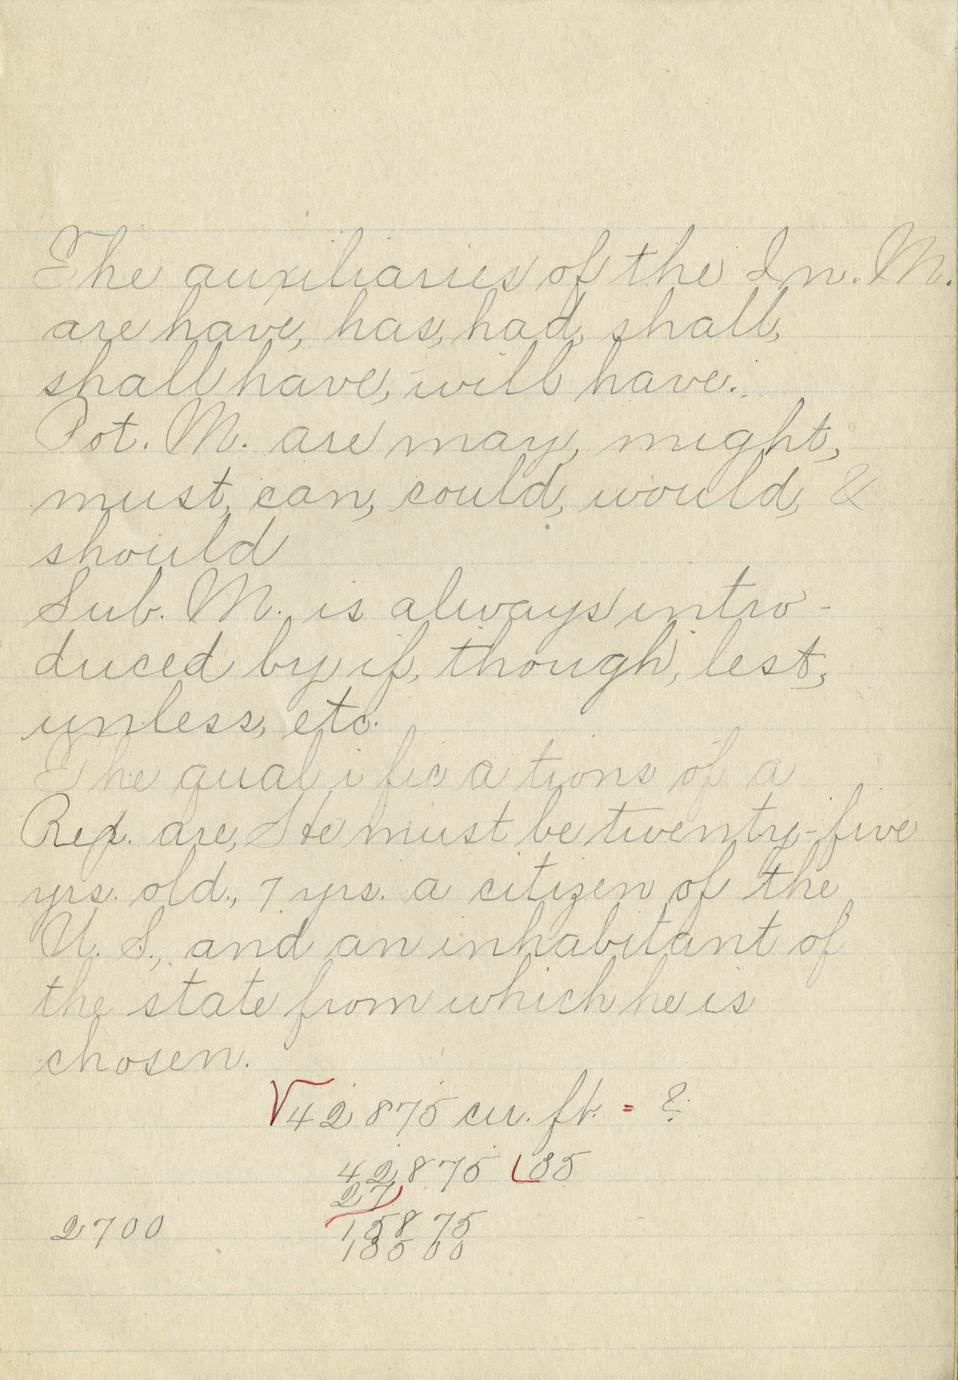 The auxiliaries of the In. M.
are have, has, had, shall,
shall have, will have.
Pot. M. are may, might,
must, can, could, would, &
should
Sub. M. is always intro-
duced by if, though, lest,
unless, etc.
The qualifications of a
Rep. are, He must be twenty-five
yrs. old., 7 yrs. a citizen of the
U. S., and an inhabitant of
the state from which he is
chosen.
√42875 cu. ft. = ?
42875 35
27
15875
2700
13500